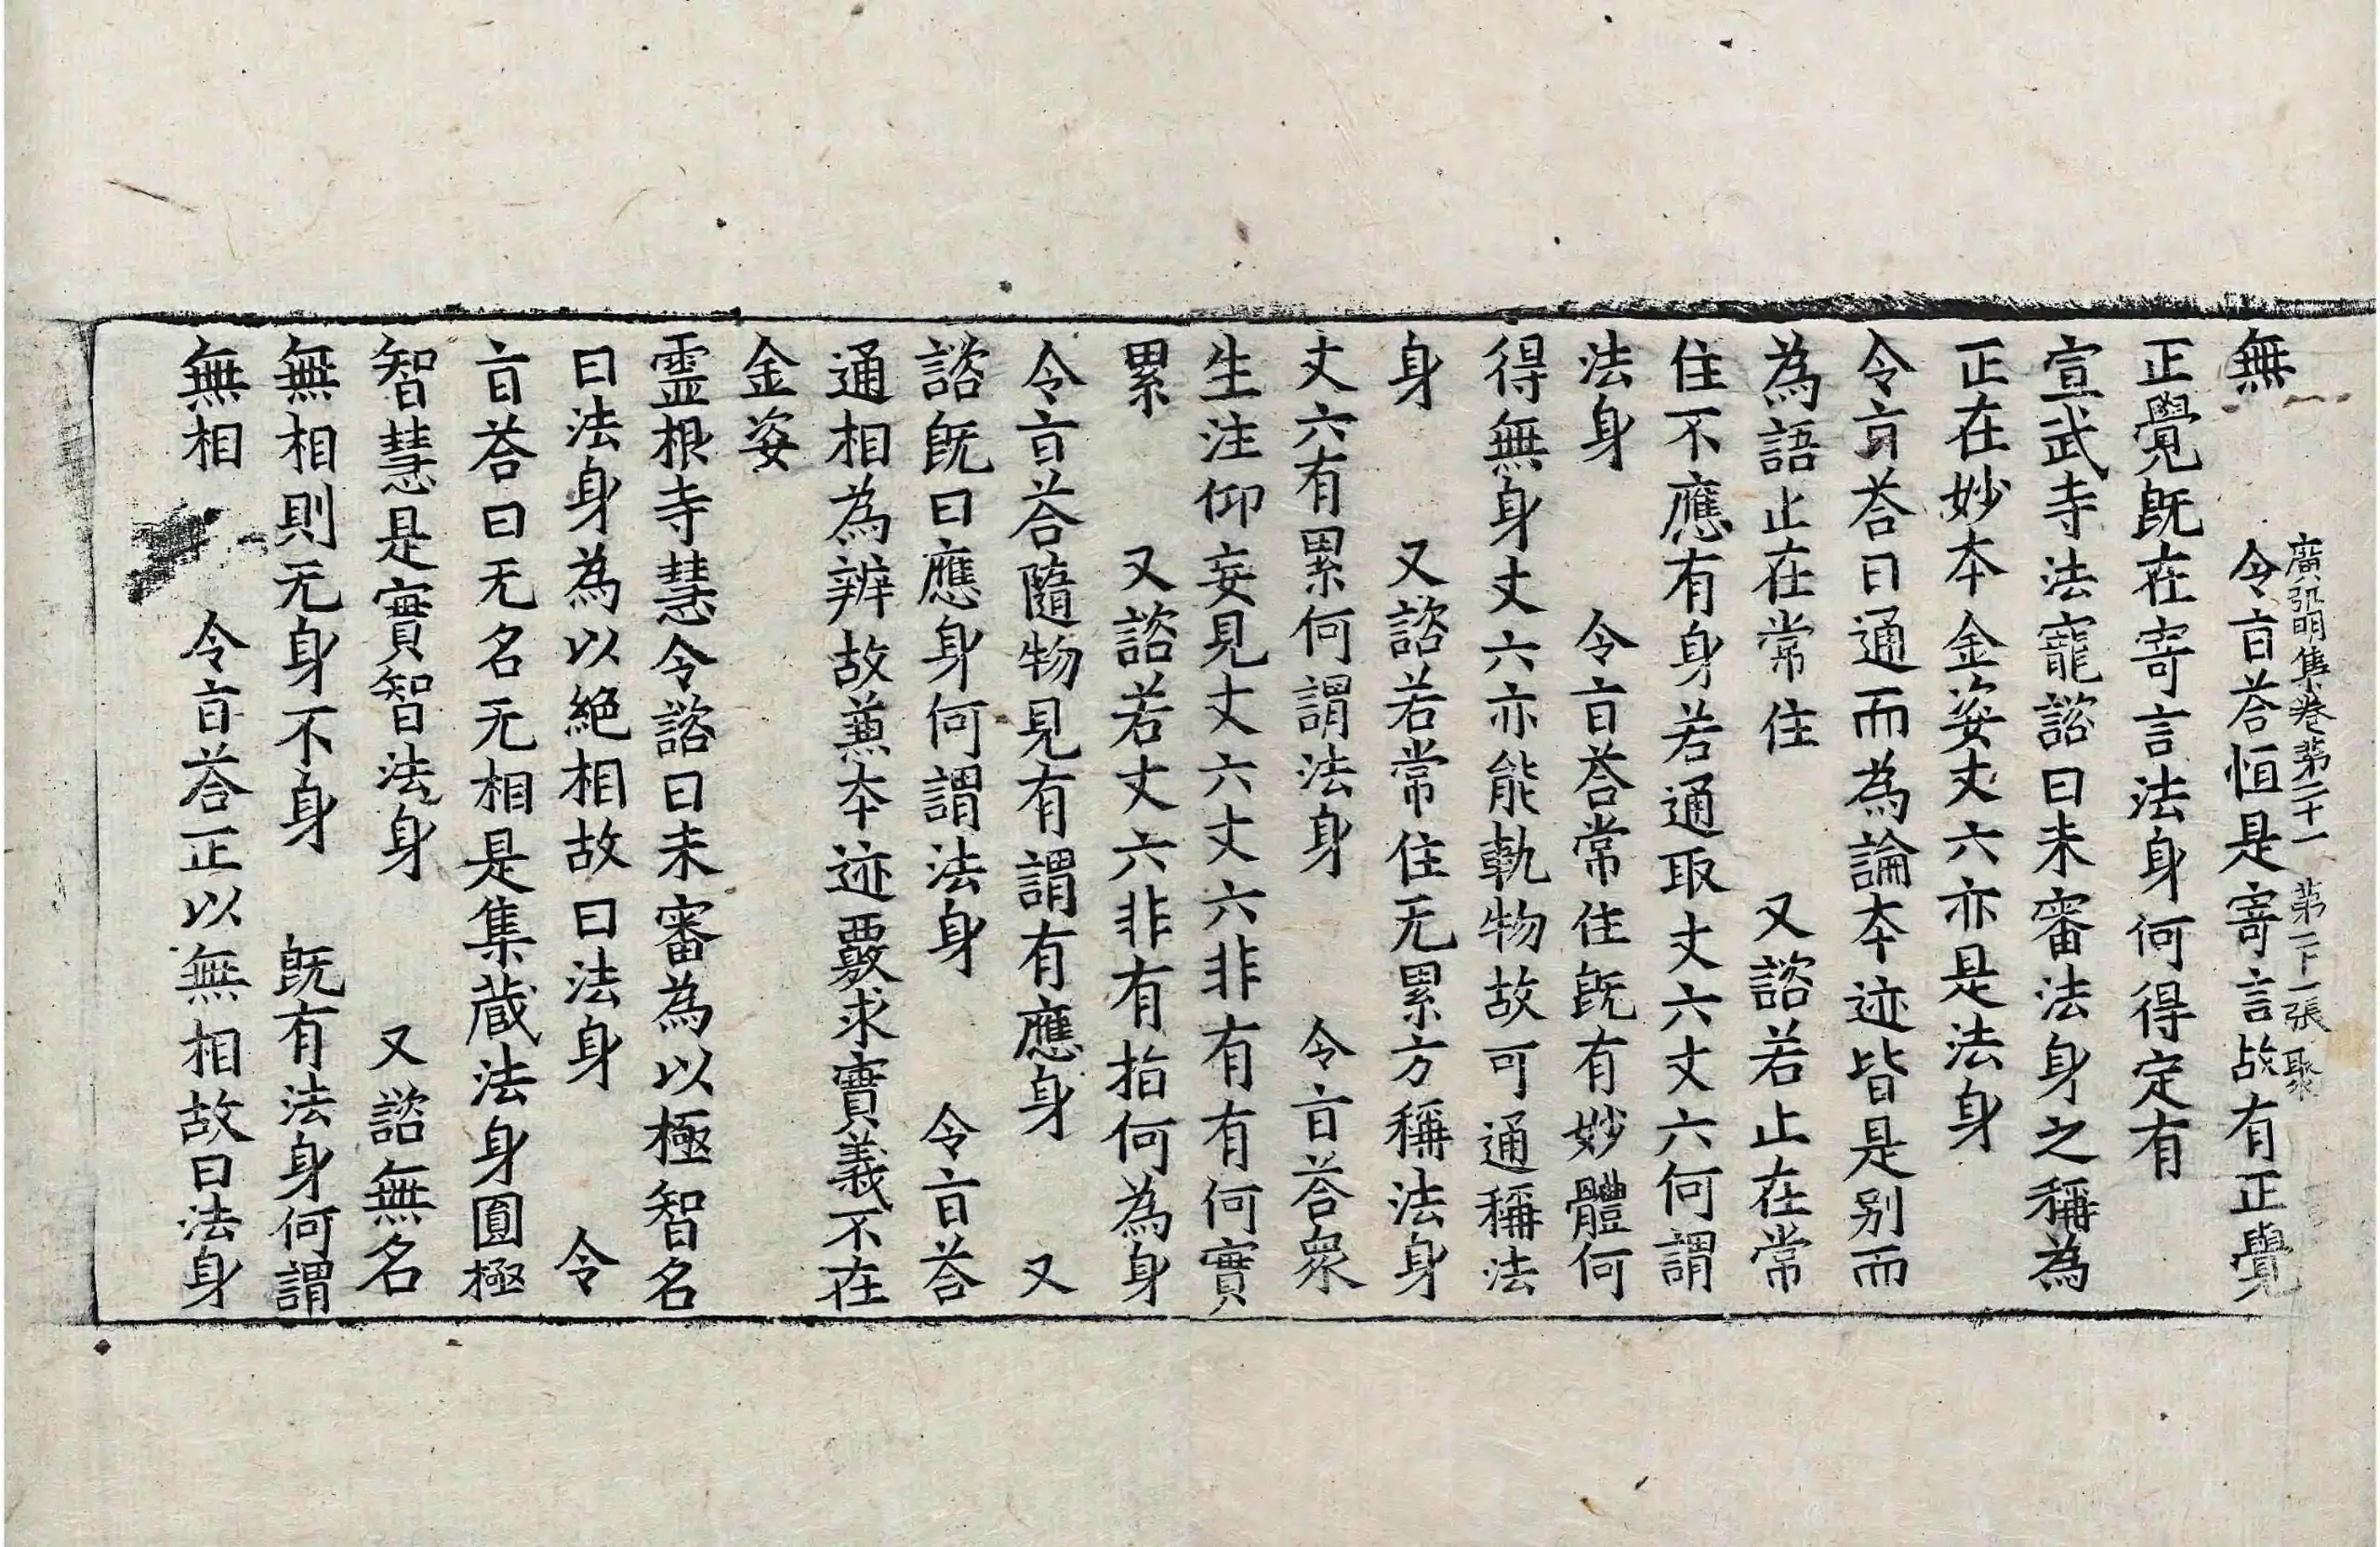 廣弘明集卷第二十一 第二十一張 聚
無 令旨荅恒是寄言故有正覺
正覺旣在寄言法身何得定有
宣武寺法寵諮曰未審法身之稱為
正在妙本金姿丈六亦是法身
令旨荅曰通而為論本迹皆是别而
為語止在常住 又諮若止在常
住不應有身若通取丈六丈六何謂
法身 令旨荅常住旣有妙體何
得無身丈六亦能軌物故可通稱法
身 又諮若常住无累方稱法身
丈六有累何謂法身 令旨荅衆
生注仰妄見丈六丈六非有有何實
累 又諮若丈六非有指何為身
令旨荅隨物見有謂有應身 又
諮旣曰應身何謂法身 令旨荅
通相為辨故兼本迹覈求實義不在
金姿
靈根寺慧令諮曰未審為以極智名
曰法身為以絶相故曰法身 令
旨荅曰无名无相是集藏法身圓極
智慧是實智法身 又諮無名
無相則无身不身 旣有法身何謂
無相 令旨荅正以無相故曰法身